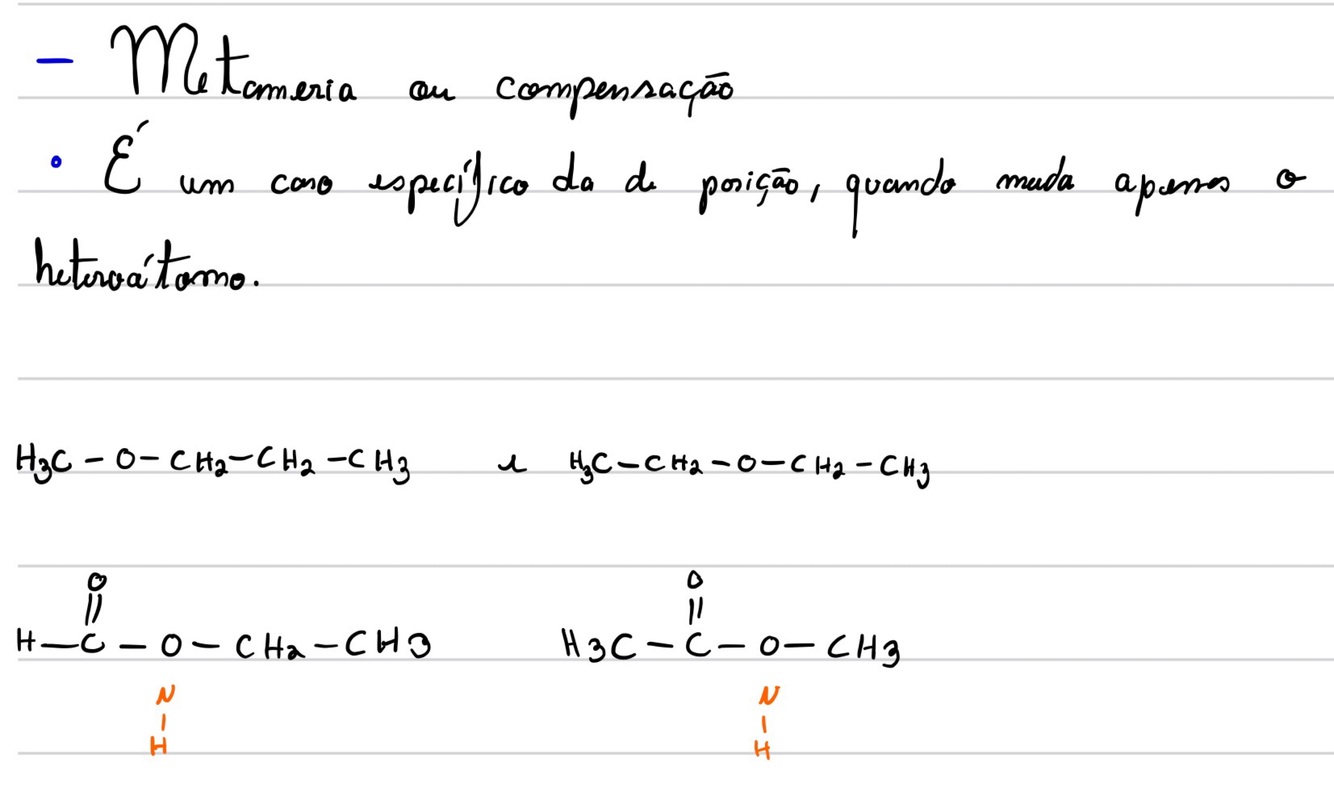 - Metameria ou compensação
• É um caso específico da de posição, quando muda apenas o
heteroátomo.
H3C - O - CH2 - CH2 - CH3 e H3C - CH2 - O - CH2 - CH3
O O
|| ||
H - C - O - CH2 - CH3 H3C - C - O - CH3
N N
| |
H H